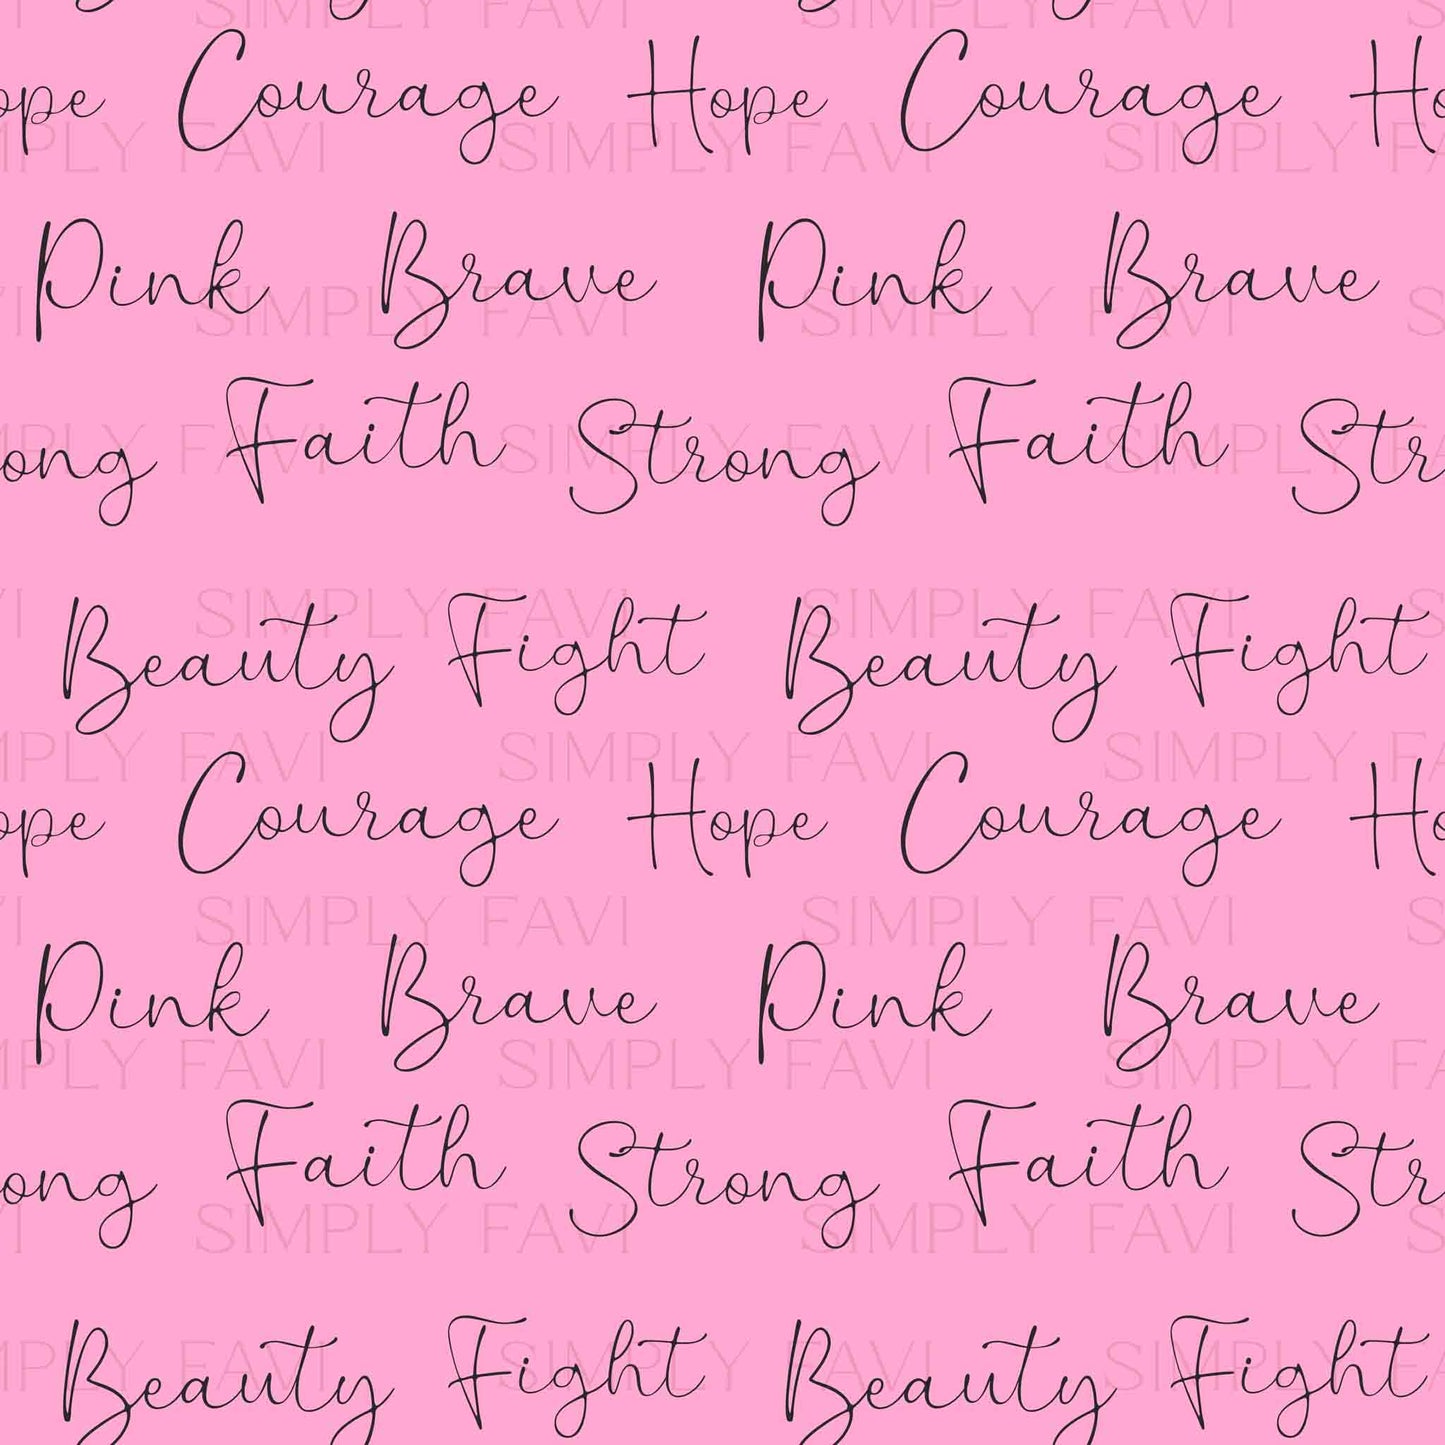 SIMPLY FAVI SIMPLY FAVI
ope Courage Hope Courage Ho
SIMPLY FAVI SIMPLY FAVI SIMPLY FA
Pink Brave Pink Brave
SIMPLY FAVI SIMPLY FAVI
Faith Faith
ong Strong Str
SIMPLY FAVI SIMPLY FAVI SIMPLY FA
SIMPLY FAVI SIMPLY FAVI
Beauty Fight Beauty Fight
SIMPLY FAVI SIMPLY FAVI SIMPLY FA
ope Courage Hope Courage Ho
SIMPLY FAVI SIMPLY FAVI
Pink Brave Pink Brave
SIMPLY FAVI SIMPLY FAVI SIMPLY FA
Faith Faith
ong Strong Str
SIMPLY FAVI SIMPLY FAVI
Beauty Fight Beauty Fight
SIMPLY FAVI SIMPLY FAVI SIMPLY FA